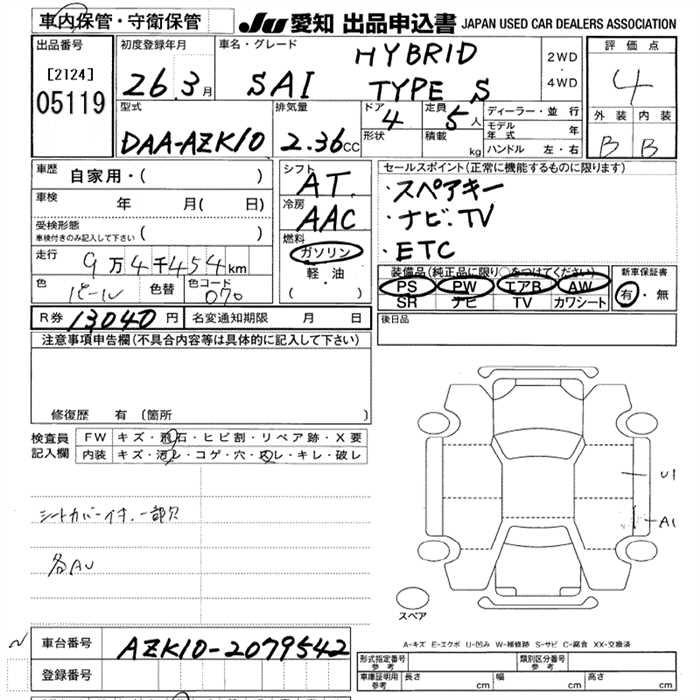 車内保管・守衛保管
JU 愛知 出品申込書 JAPAN USED CAR DEALERS ASSOCIATION
出品番号
[2124]
05119
初度登録年月
26.3月
車名・グレード
SAI
HYBRID
TYPE S
2WD
・
4WD
評価点
4
外装 内装
B B
型式
DAA-AZK10
排気量
2.36cc
ドア
4
形状
定員
5人
積載
kg
ディーラー・並行
モデル年式 年
ハンドル 左・右
車歴
自家用・( )
車検
年 月( 日)
受検形態
車検付きのみ記入して下さい ( )
走行
9万4千454km
色
パール
色替
色コード
070
シフト
AT
冷房
AAC
燃料
ガソリン
軽・油
( )
セールスポイント(正常に機能するものに限ります)
・スペアキー
・ナビ.TV
・ETC
装備品(純正品に限り○をつけてください)
PS PW エアB AW
SR ナビ TV カワシート
新車保証書
有・無
R券 13040円 名変通知期限 月 日
後日品
注意事項申告欄(不具合内容等は具体的に記入して下さい)
修復歴 有(箇所 )
検査員
記入欄
FW キズ・飛石・ヒビ割・リペア跡・X要
内装 キズ・汚レ・コゲ・穴・スレ・キレ・破レ
シートカバー付.一部欠
各AU
U1
A1
スペア
A-キズ E-エクボ U-凹み W-補修跡 S-サビ C-腐食 XX-交換済
車台番号 AZK10-2079542
登録番号
形式指定番号
参考
類別区分番号
参考
車庫証明用
参考
長さ cm 幅 cm 高さ cm